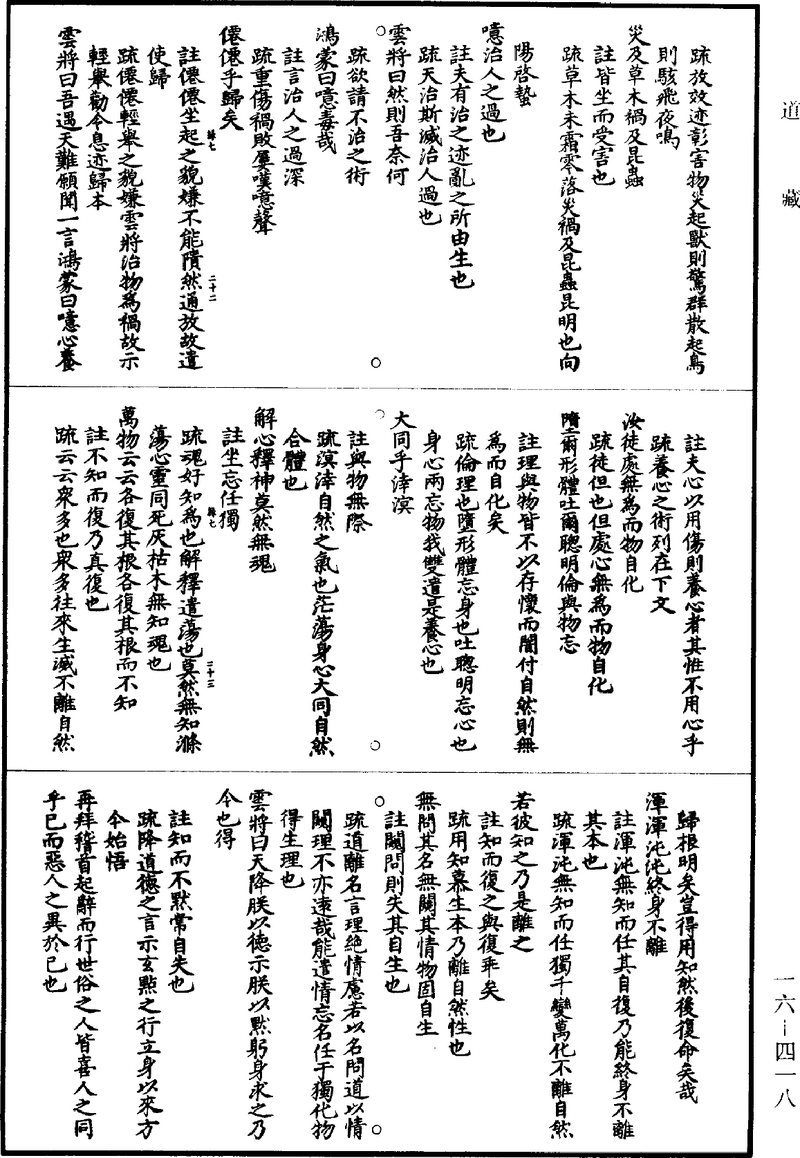 道藏
疏放效迹彰害物災起獸則驚群散起鳥
則駭飛夜鳴
災及草木禍及昆蟲
註皆坐而受害也
疏草木未霜零落災禍及昆蟲昆明也向
陽啓蟄
噫治人之過也
註夫有治之迹亂之所由生也
疏天治斯滅治人過也
雲將曰然則吾奈何
疏欲請不治之術
鴻蒙曰噫毒哉
註言治人之過深
疏重傷禍敗屢嘆噫聲
僊僊乎歸矣
註僊僊坐起之貌嫌不能隤然通放故遣
使歸
疏僊僊輕舉之貌嫌雲將治物為禍故示
輕舉勸令息迹歸本
雲將曰吾遇天難願聞一言鴻蒙曰噫心養
二十二
註夫心以用傷則養心者其惟不用心乎
疏養心之術列在下文
汝徒處無為而物自化
疏徒但也但處心無為而物自化
墮爾形體吐爾聰明倫與物忘
註理與物皆不以存懷而闇付自然則無
為而自化矣
疏倫理也墮形體忘身也吐聰明忘心也
身心兩忘物我雙遣是養心也
大同乎涬溟
註與物無際
疏溟涬自然之氣也茫蕩身心大同自然
合體也
解心釋神莫然無魂
註坐忘任獨
疏魂好知為也解釋遣蕩也莫然無知滌
蕩心靈同死灰枯木無知魂也
萬物云云各復其根各復其根而不知
註不知而復乃真復也
疏云云衆多也衆多往來生滅不離自然
二十三
歸根明矣豈得用知然後復命矣哉
渾渾沌沌終身不離
註渾沌無知而任其自復乃能終身不離
其本也
疏渾沌無知而任獨千變萬化不離自然
若彼知之乃是離之
註知而復之與復乖矣
疏用知慕生本乃離自然性也
無問其名無闚其情物固自生
註闚問則失其自生也
疏道離名言理絕情慮若以名問道以情
闚理不亦遠哉能遣情忘名任于獨化物
得生理也
雲將曰天降朕以德示朕以默躬身求之乃
今也得
註知而不默常自失也
疏降道德之言示玄默之行立身以來方
今始悟
再拜稽首起辭而行世俗之人皆喜人之同
乎已而惡人之異於已也
一六—四一八